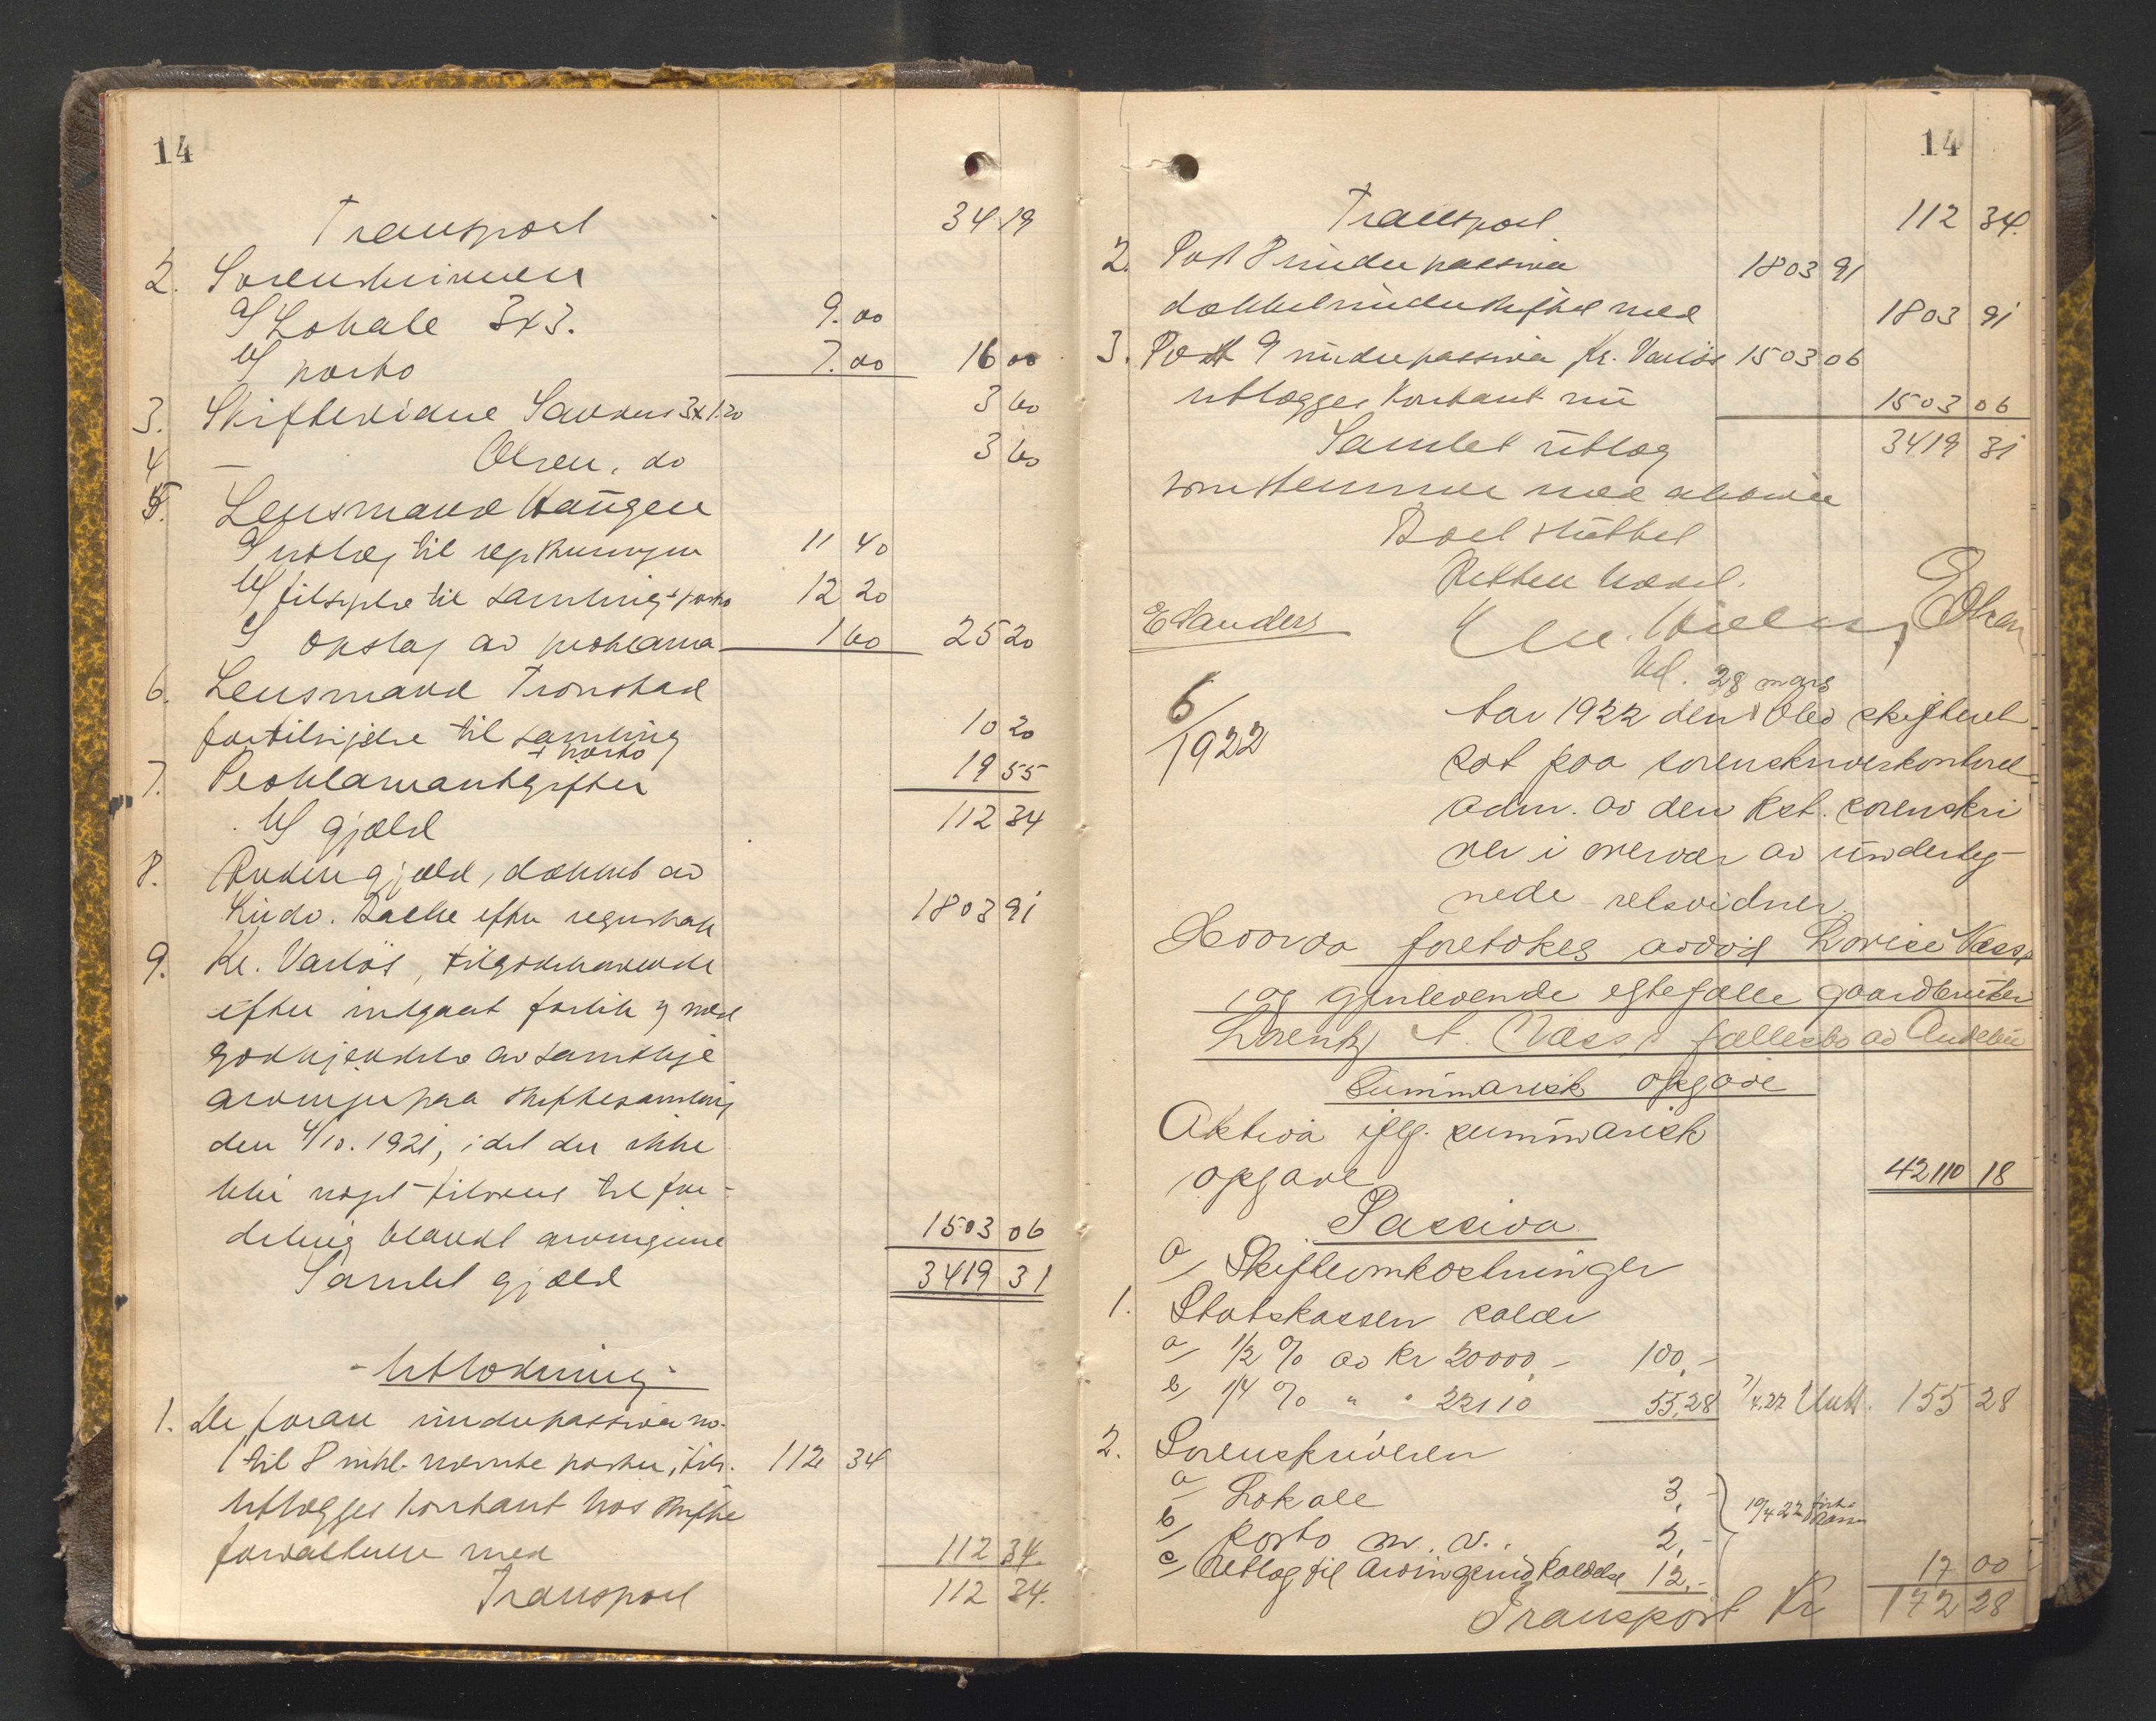 14
Transport 34 19
2. Sorenskriveren
a/ Lokale 3x3. 9.00
b/ porto 7.00 16 00
3. Skiftevidne Sanders 3x1.20 3 60
4 — Olsen, do 3 60
5. Lensmand Haugen
a/ utlæg til registreringen 11 40
b/ tilsigelse til samling + porto 12 20
c/ opslag av proklama 1 60 25 20
6. Lensmand Tronstad
for tilsigelse til samling
+ porto 10 20
7. Proklamautgifter 19 55
b/ gjæld 112 34
8. Anden gjæld, dækket av
efter regnskap 1803 91
9. Kr. Varløs, tilgodehavende
efter indgaat forlik og med
godkjendelse av samtlige
arvinger paa skiftesamling
den 4/10. 1921, idet der ikke
blir noget tilovers til for-
deling blandt arvingene 1503 06
Samlet gjæld 3419 31
- Utlodning -
1. De foran under passiva no.
1 til 8 inkl. nævnte poster, tils. 112 34
utlægges kontant hos skifte
forvalteren med 112 34.
Transport 112 34.
14
Transport 112 34.
2. Post 8 under passiva 1803 91
dækkel under skiftet med 1803 91
3. Post 9 under passiva Kr. Varløs 1503 06
utlægges kontant nu 1503 06
Samlet utlæg 3419 31
som stemmer med aktiva
Boet sluttet
Retten hævet.
E Sanders E Olsen
6/1922
28 mars
Aar 1922 den blev skifteret
sat paa sorenskriverkontoret
adm. av den kst. sorenskri
ver i overvær av underteg-
nede retsvidner.
Hvorda foretokes avdød Lovise Næss
og gjenlevende egtefælle gaardbruker
Lorentz A. Næss's fællesbo av Andebu
Summarisk opgave
Aktiva iflg. summarisk
opgave 42110 18
Passiva
a/ Skifteomkostninger
1. Statskassen saldr
a/ 1/2 % av kr 20000,- 100,-
b/ 1/4 % " " 22110 55,28 7/4.22 155 28
2. Sorenskriveren
a/ Lokale 3,- 10/4 22
b/ Porto m. v. 2,-
c/ Utlæg til arvingeindkaldelse 12,- 17 00
Transport Kr 172 28